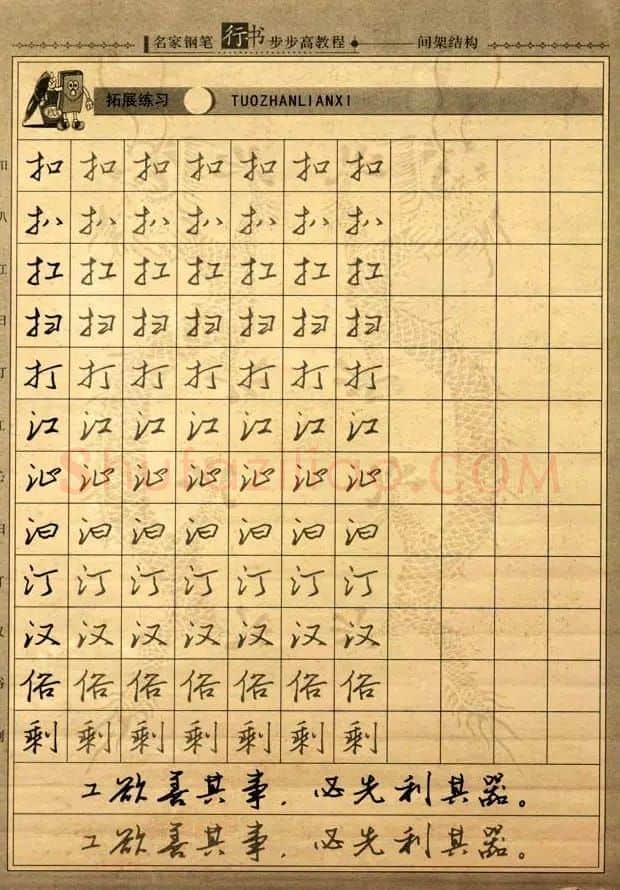 名家钢笔行书步步高教程 间架结构
拓展练习 TUOZHANLIANXI
扣 扣 扣 扣 扣 扣 扣 扣
扒 扒 扒 扒 扒 扒 扒 扒
扛 扛 扛 扛 扛 扛 扛 扛
扫 扫 扫 扫 扫 扫 扫
打 打 打 打 打 打 打
江 江 江 江 江 江 江
沁 沁 沁 沁 沁 沁 沁
汩 汩 汩 汩 汩 汩 汩
汀 汀 汀 汀 汀 汀 汀
汉 汉 汉 汉 汉 汉 汉
俗 俗 俗 俗 俗 俗 俗
剩 剩 剩 剩 剩 剩 剩
工欲善其事，必先利其器。
工欲善其事，必先利其器。
Shufaziliao.COM